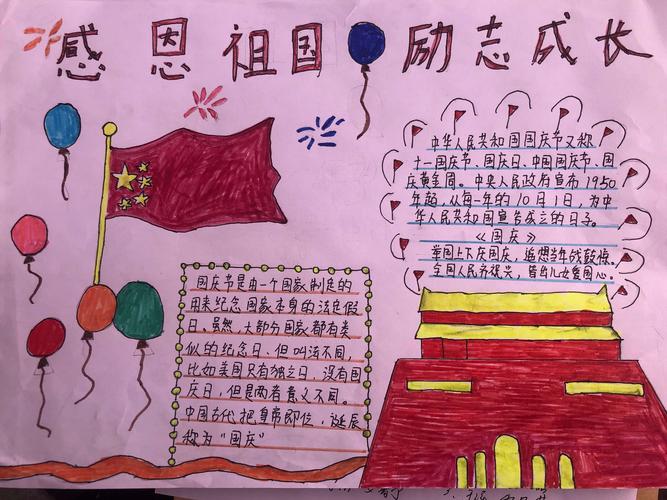 感恩祖国 励志成长
中华人民共和国国庆节又称
十一国庆节、国庆日、中国国庆节、国
庆黄金周。中央人民政府宣布1950
年起,从每一年的10月1日,为中
华人民共和国宣告成立的日子。
《国庆》
举国上下庆国庆,追想当年战鼓惊。
全国人民齐祝兴,皆与儿女爱国心。
国庆节是由一个国家制定的
用来纪念国家本身的法定假
日。虽然,大部分国家都有类
似的纪念日,但叫法不同,
比如美国只有独立日,没有国
庆日,但是两者意义不同。
中国古代把皇帝即位,诞辰
称为“国庆”